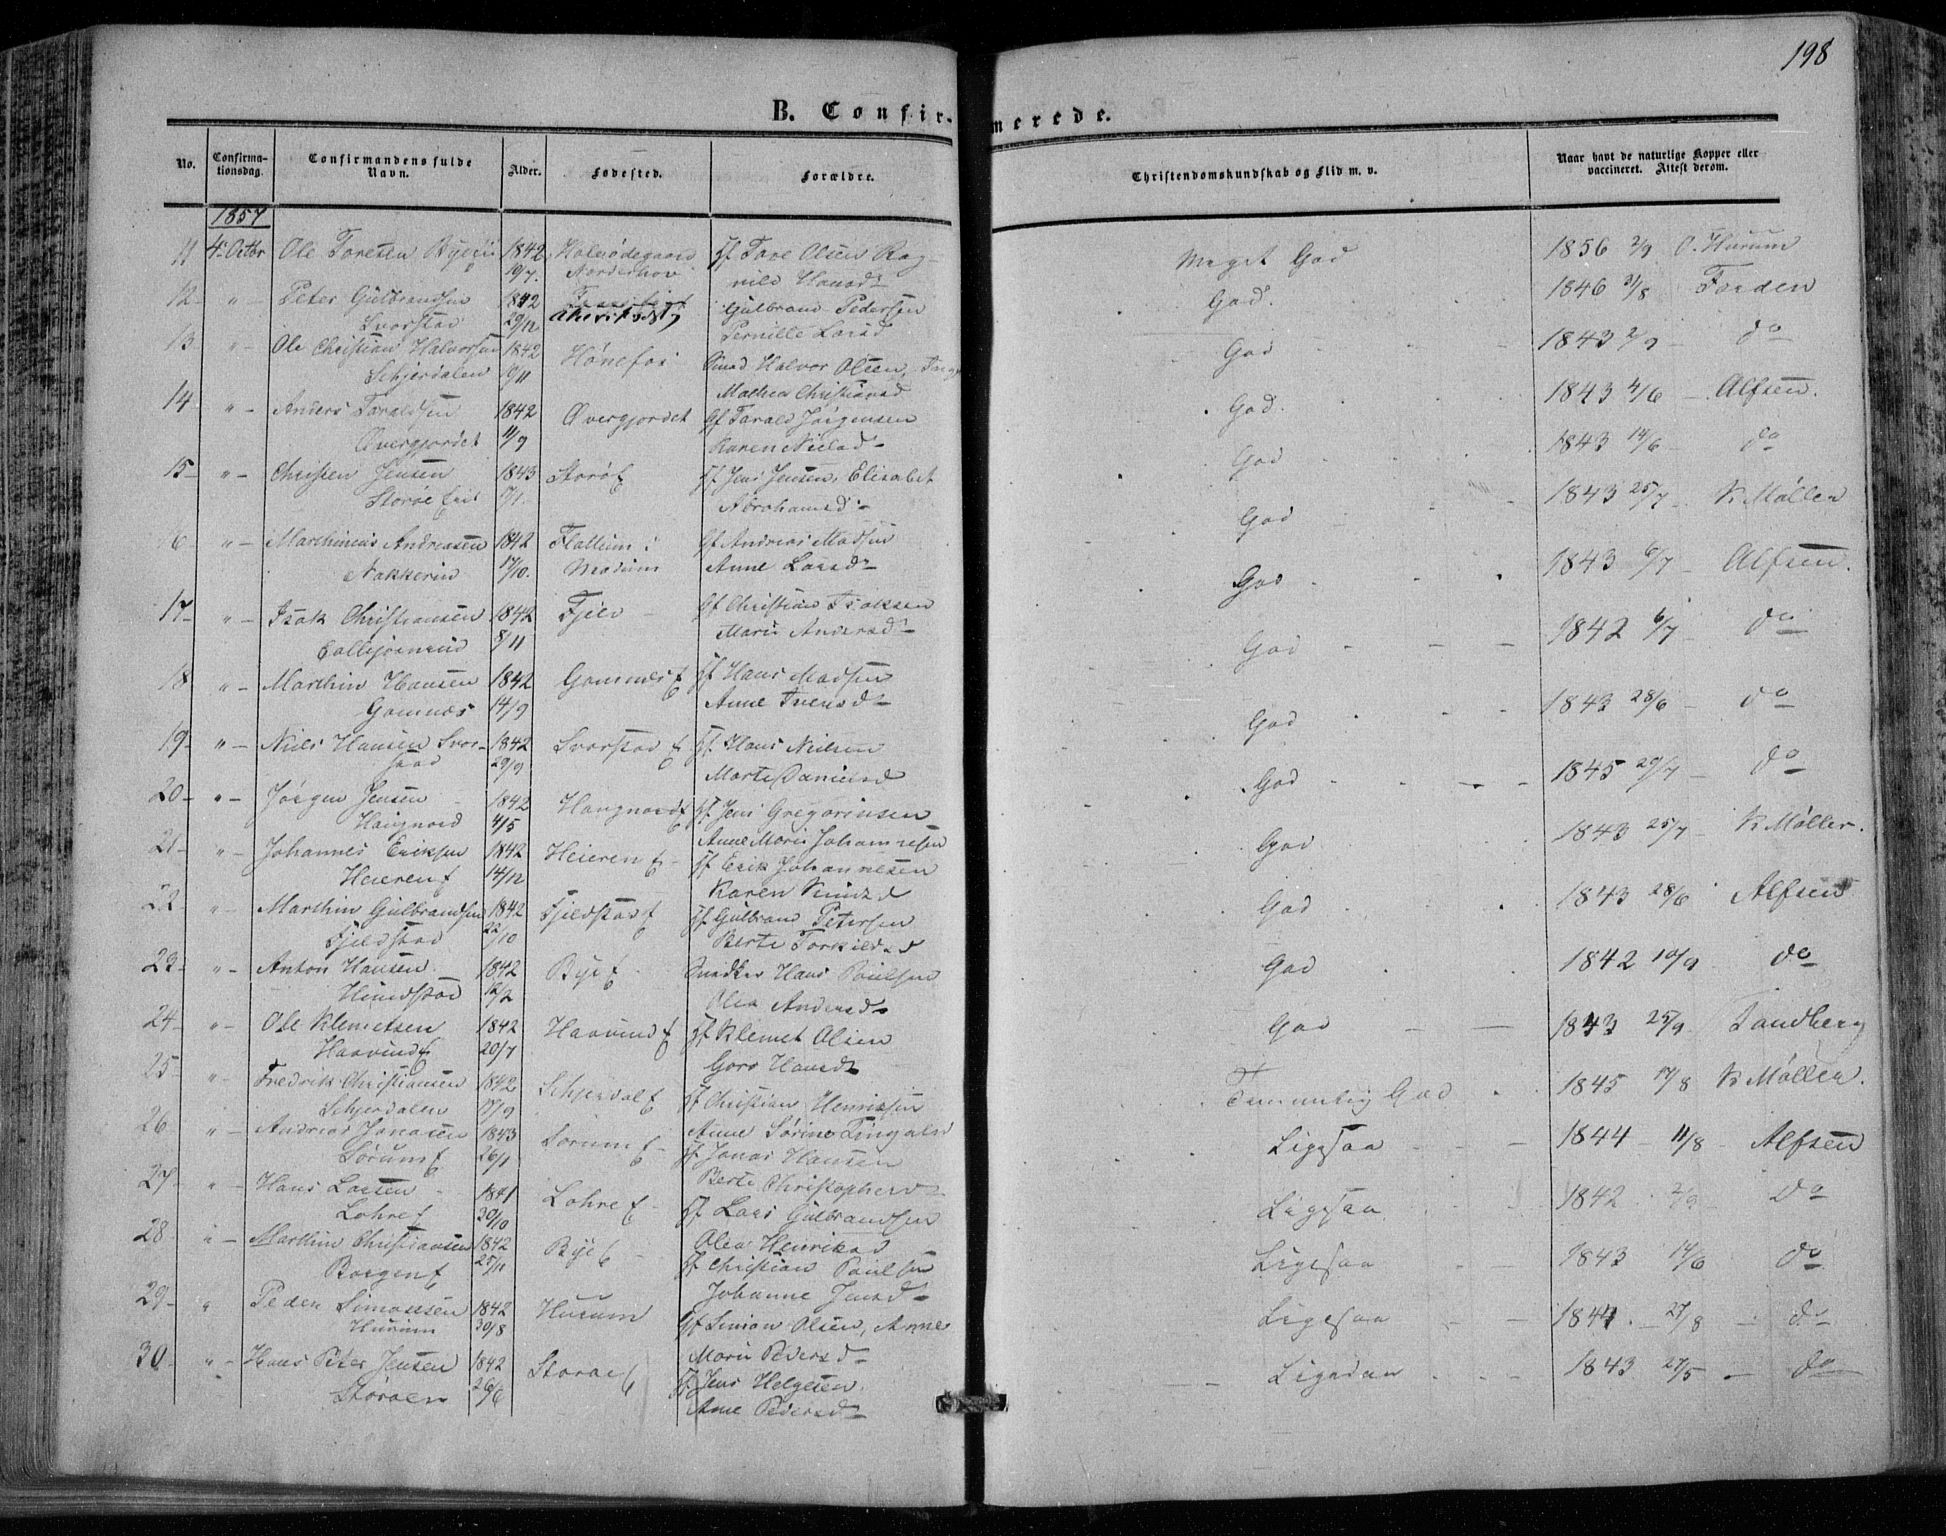 198
B. Confirmerede.
No.
Confirmationsdag.
Confirmandens fulde Navn.
Alder.
Fødested.
Forældre.
Christendomskundskab og Flid m. v.
Naar havt de naturlige Kopper eller vaccineret. Attest derom.
1857
11 4de Octbr Ole Toresen 1842 Gf Tore Olsen Rag- Meget God 1856 2/9 O. Hurum
19/7. Norderhov nild Hansd
12 " Peter Gulbrandsen 1842 Gulbrand Pedersen God. 1846 3/8
Svorstad 29/12 Pernille Larsd
13 " Ole Christian Halvorsen 1842 Hønefos Smed Halvor Olsen, God 1843 2/9 do
Schjerdalen 19/11 Mathea Christiansd
14 " Anders Taraldsen 1842 Øvergjordet Gf Tarald Jørgensen God. 1843 4/6 Alfsen.
Øvergjordet 11/9 Karen Nielsd
15 " Christen Jensen 1843 Storøe Gf Jens Jensen, Elisabet God 1843 14/6 do
Storøe Eie 17/1. Abrahamsd
16 " Marthinius Andreasen 1842 Modum Gf Andreas Madsen God 1843 25/7 K Møller
Nakkerud 17/10. Anne Larsd
17 " Isak Christiansen 1842 Fjeld Gf Christian Isaksen God 1843 6/7 Alfsen.
8/11 Marie Andersd
18 " Marthin Hansen 1842 Gommes Gf Hans Madsen God 1842 6/7 do
Gomnæs 14/9 Anne Iversd
19 " Niels Hansen Svor- 1842 Svorstad Gf Hans Nielsen God 1843 28/6 do
stad 29/9 Marte Danielsd
20 " Jørgen Jensen 1842 Gf Jens Gregoriusen God 1845 29/7 do
4/5 Anne Marie Johannesen
21 " Johannes Eriksen 1842 Heieren Gf Erik Johannesen God 1843 25/7 K Møller.
Heieren 14/12 Karen Knudsd
22 " Marthin Gulbrandsen 1842 Fjeldstad Gf Gulbrand Petersen God 1843 28/6 Alfsen
Fjeldstad 22/10 Berte Torkildsd
23 " Anton Hansen 1842 Bye Snedker Hans Paulsen God 1842 19/9 do
Hundstad 12/2 Olea Andersd
24 " Ole Klemetsen 1842 Gf Klemet Olsen God 1843 25/9 Tandberg
20/7 Goro Hansd
25 " Fredrik Christiansen 1842 Schjerdal Gf Christian Henriksen Temmelig God 1845 17/8 K Møller.
Schjerdalen 17/9 Anne Sørine
26 " Andreas Jonasen 1843 Sørum Gf Jonas Hansen Ligesaa 1844 11/8 Alfsen
Sørum 26/1 Berte Christophersd
27 " Hans Larsen 1841 Lohre Gf Lars Gulbrandsen Ligesaa 1842 2/9 do
Lohre 30/10 Olea Henriksd
28 " Marthin Christiansen 1842 Bye Gf Christian Paulsen Ligesaa 1843 14/6 do
Borgen 25/11 Johanne Jensd
29 " Peder Simonsen 1842 Hurum Gf Simon Olsen, Anne Ligesaa 1844 27/8 do
Hurum 30/8 Marie Pedersd
30 " Hans Peter Jensen 1842 Storøe Gf Jens Helgesen. Ligedan 1843 27/5 do
Storøen 26/6 Anne Pedersd